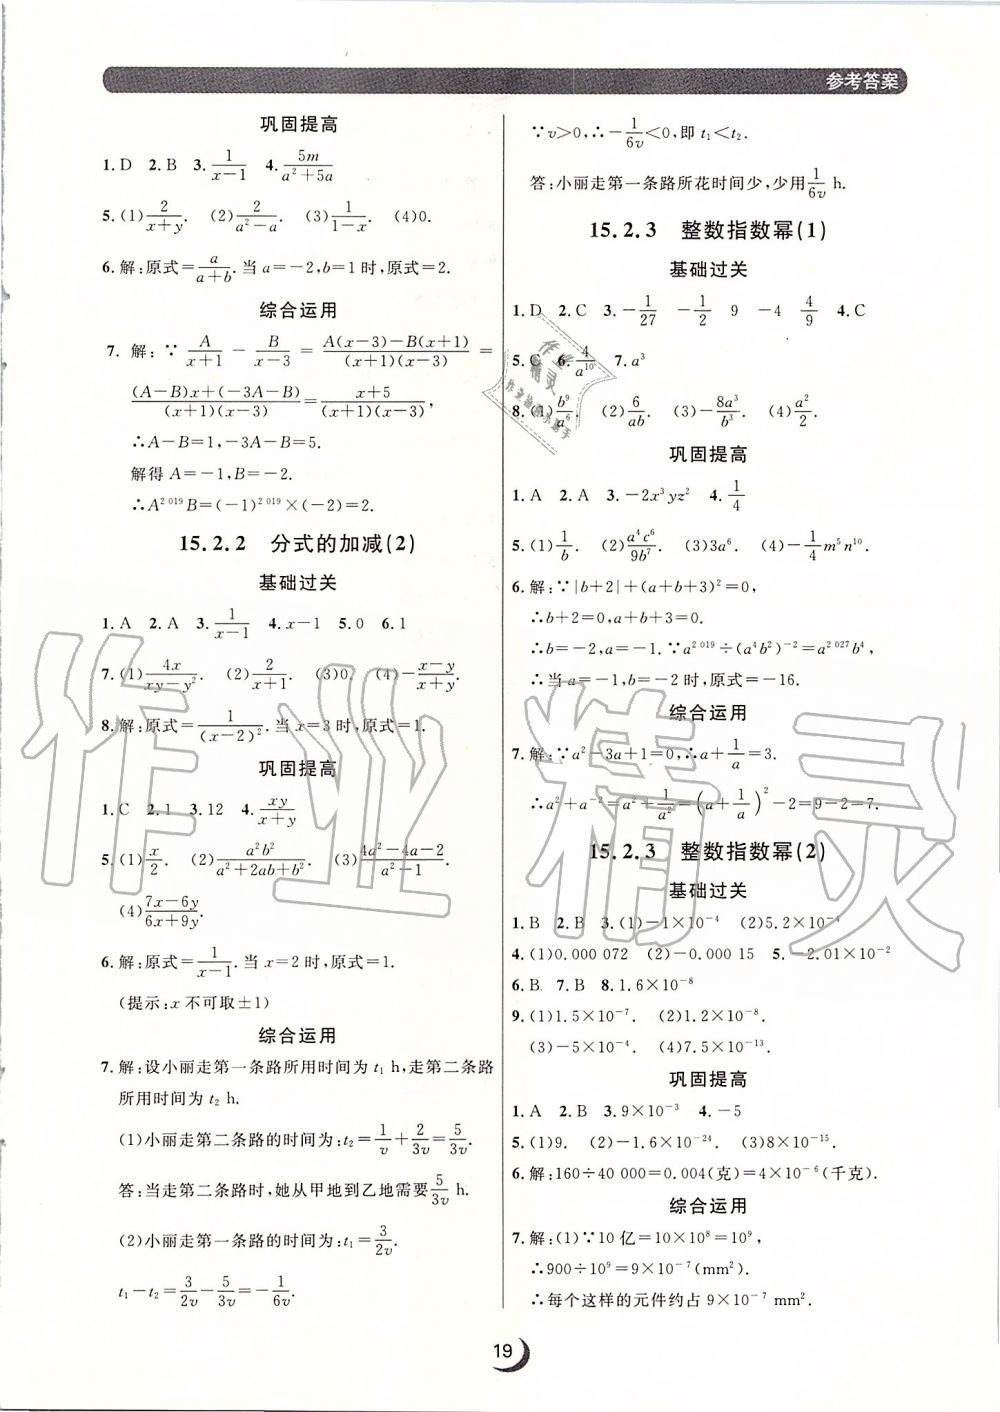 参考答案
巩固提高
1. D 2. B 3. 1/(x-1) 4. 5m/(a²+5a)
5. (1) 2/(x+y). (2) 2/(a²-a). (3) 1/(1-x). (4)0.
6. 解:原式=a/(a+b). 当 a=-2,b=1 时,原式=2.
综合运用
7. 解:∵ A/(x+1) - B/(x-3) = (A(x-3)-B(x+1))/((x+1)(x-3)) =
((A-B)x+(-3A-B))/((x+1)(x-3)) = (x+5)/((x+1)(x-3)),
∴A-B=1,-3A-B=5.
解得 A=-1,B=-2.
∴A^2 019 B=(-1)^2 019×(-2)=2.
15.2.2 分式的加减(2)
基础过关
1. A 2. A 3. 1/(x-1) 4. x-1 5. 0 6. 1
7. (1) 4x/(xy-y²). (2) 2/(x+1). (3)0. (4)-(x-y)/(x+y).
8. 解:原式=1/(x-2)². 当 x=3 时,原式=1.
巩固提高
1. C 2. 1 3. 12 4. xy/(x+y)
5. (1) x/2. (2) a²b²/(a²+2ab+b²). (3) (4a²-4a-2)/(a²-1)
(4) (7x-6y)/(6x+9y).
6. 解:原式=1/(x-1). 当 x=2 时,原式=1.
(提示:x 不可取±1)
综合运用
7. 解:设小丽走第一条路所用时间为 t₁ h,走第二条路
所用时间为 t₂ h.
(1)小丽走第二条路的时间为:t₂=1/v+2/3v=5/3v.
答:当走第二条路时,她从甲地到乙地需要 5/3v h.
(2)小丽走第一条路的时间为:t₁=3/2v.
t₁-t₂=3/2v-5/3v=-1/6v.
∵v>0,∴-1/6v<0,即 t₁<t₂.
答:小丽走第一条路所花时间少,少用 1/6v h.
15.2.3 整数指数幂(1)
基础过关
1. D 2. C 3. -1/27 -1/2 9 -4 4/9 4. C
5. C 6. 4/a¹⁰ 7. a³
8. (1) b⁹/a⁶. (2) 6/ab. (3)-8a³/b³. (4) a²/2.
巩固提高
1. A 2. A 3. -2x³yz² 4. 1/4
5. (1) 1/b. (2) a⁴c⁶/9b⁷. (3)3a⁶. (4)-1/4 m⁵n¹⁰.
6. 解:∵|b+2|+(a+b+3)²=0,
∴b+2=0,a+b+3=0.
∴b=-2,a=-1. ∵a^2 019÷(a⁴b²)⁻²=a^2 027 b⁴,
∴当 a=-1,b=-2 时,原式=-16.
综合运用
7. 解:∵a²-3a+1=0,∴a+1/a=3.
∴a²+a⁻²=a²+1/a²=(a+1/a)²-2=9-2=7.
15.2.3 整数指数幂(2)
基础过关
1. B 2. B 3. (1)-1×10⁻⁴ (2)5.2×10⁻⁴
4. (1)0.000 072 (2)-0.000 15 5. -2.01×10⁻²
6. B 7. B 8. 1.6×10⁻⁸
9. (1)1.5×10⁻⁷. (2)1.2×10⁻⁸.
(3)-5×10⁻⁴. (4)7.5×10⁻¹³.
巩固提高
1. A 2. B 3. 9×10⁻³ 4. -5
5. (1)9. (2)-1.6×10⁻²⁴. (3)8×10⁻¹⁵.
6. 解:160÷40 000=0.004(克)=4×10⁻⁶(千克).
综合运用
7. 解:(1)∵10 亿=10×10⁸=10⁹,
∴900÷10⁹=9×10⁻⁷(mm²).
∴每个这样的元件约占 9×10⁻⁷ mm².
19
作业精灵